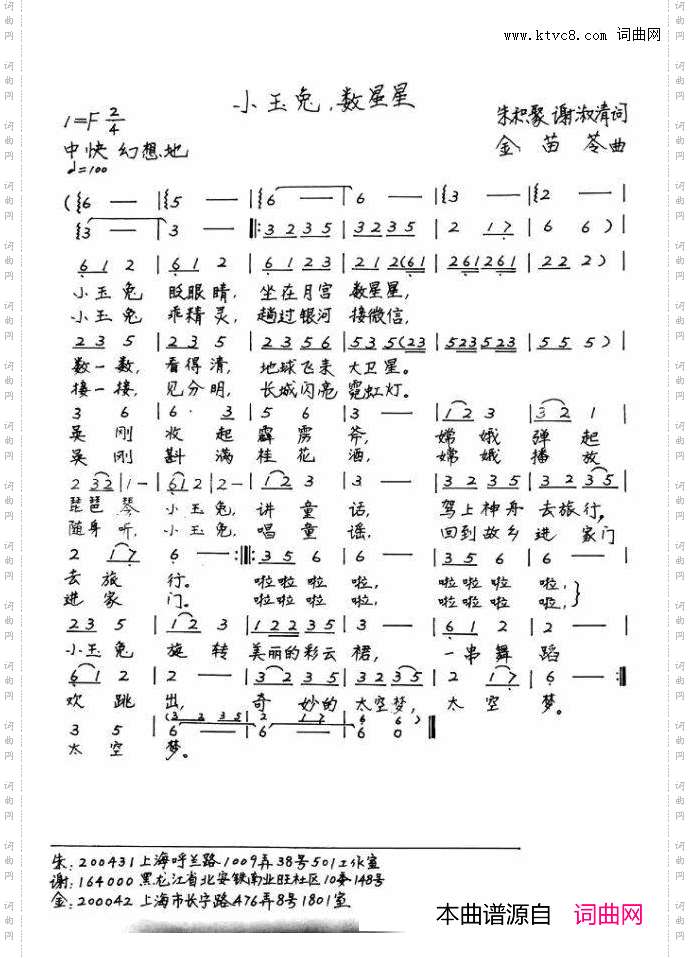 www.ktvc8.com 词曲网
小玉兔,数星星
1=F 2/4
朱积聚 谢淑清词
中快 幻想地
金苗苓曲
♩=100
(6 — | 5 — | 6 — | 6 — | 3 — | 2 — |
3 — | 3 — ‖: 3 2 3 5 | 3 2 3 5 | 2 1 7 | 6 6 ) |
6 1 2 | 6 1 2 | 6 1 2 3 | 2 1 2 (6 1 | 2 6 1 2 6 1 | 2 2 2 ) |
小玉兔 眨眼睛, 坐在月宫 数星星,
小玉兔 乖精灵, 趟过银河 接微信,
2 3 5 | 2 3 5 | 2 3 5 6 | 5 3 5 (2 3 | 5 2 3 5 2 3 | 5 5 5 ) |
数一数, 看得清, 地球飞来 大卫星。
接一接, 见分明, 长城闪亮 霓虹灯。
3 6 | 6 · 3 | 5 6 | 3 — | 1 2 3 | 3 2 1 |
吴 刚 收 起 霹 雳 斧, 嫦 娥 弹 起
吴 刚 斟 满 桂 花 酒, 嫦 娥 播 放
2 3 2 | 1 — | 6 1 2 | 2 — | 1 2 3 | 3 — | 3 2 3 5 | 3 2 3 5 |
琵琶琴 小玉兔, 讲 童 话, 驾上神舟 去旅行,
随身听, 小玉兔, 唱 童 谣, 回到故乡 进家门
2 1 7 | 6 — :‖: 3 5 6 | 6 — | 3 5 6 | 6 — |
去 旅 行。 啦啦 啦 啦, 啦啦 啦 啦,
进 家 门。 啦啦 啦 啦, 啦啦 啦 啦,
2 3 5 | 1 2 3 | 1 2 2 3 5 | 3 — | 6 1 2 | 2 — |
小玉兔 旋 转 美丽的彩云 裙, 一串舞 蹈
6 1 2 | 2 — | 3 2 3 5 | 3 2 3 5 | 2 1 7 | 6 — :‖
欢 跳 出, 奇 妙的 太空梦, 太 空 梦。
(3 2 3 5 | 2 1 7 | 6 6 )
3 5 | 6 — | 6 — | 6 0 ‖
太 空 梦。
朱: 200431 上海呼兰路1009弄38号501工作室
谢: 164000 黑龙江省北安铁南业旺社区10委148号
金: 200042 上海市长宁路476弄8号1801室
本曲谱源自 词曲网